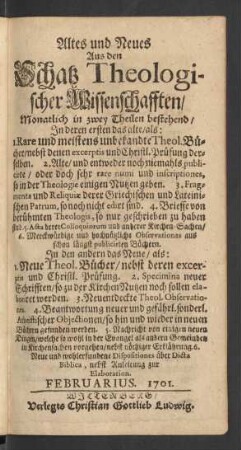 Altes und Neues
Aus den
Schatz Theologi-
scher Wissenschafften/
Monatlich in zwey Theilen bestehend/
In deren ersten das alte/als:
1. Rare und meistens unbekandte Theol. Bü-
cher/nebst denen excerptis und Christl. Prüfung der-
selben. 2. Alte/und entweder noch niemahls publi-
cirte/ oder doch sehr rare numi und inscriptiones,
so in der Theologie einigen Nutzen geben. 3. Frag-
menta und Reliquiæ derer Griechischen und Lateini-
schen Patrum, so noch nicht edirt sind. 4. Briefe von
berühmten Theologis, so nur geschrieben zu haben
sind. 5. Acta derer Colloquiorum und anderer Kirchen-Sachen/
6. Merckwürdige und hochnützliche Observationes aus
schon längst publicirten Büchern.
In den andern das Neue/ als:
1. Neue Theol. Bücher/ nebst deren excer-
ptis und Christl. Prüfung. 2. Specimina neuer
Schrifften/so zu der Kirchen Nutzen noch sollen ela-
boriret werden. 3. Neuentdeckte Theol. Observatio-
nen. 4. Beantwortung neuer und gefährl. sonderl.
Atheistischer Objectionen/so hin und wieder in neuen
Büchern gefunden werden. 5. Nachricht von einigen neuen
Dingen/welche so wohl in der Evangel. als andern Gemeinden
in Kirchensachen vorgehen/nebst nöthiger Erklährung. 6.
Neue und wohlerfundene Dispositiones über Dicta
Biblica, nebst Anleitung zur
Elaboration.
FEBRUARIUS. 1701.
WITTENBERG/
Verlegts Christian Gottlieb Ludwig.